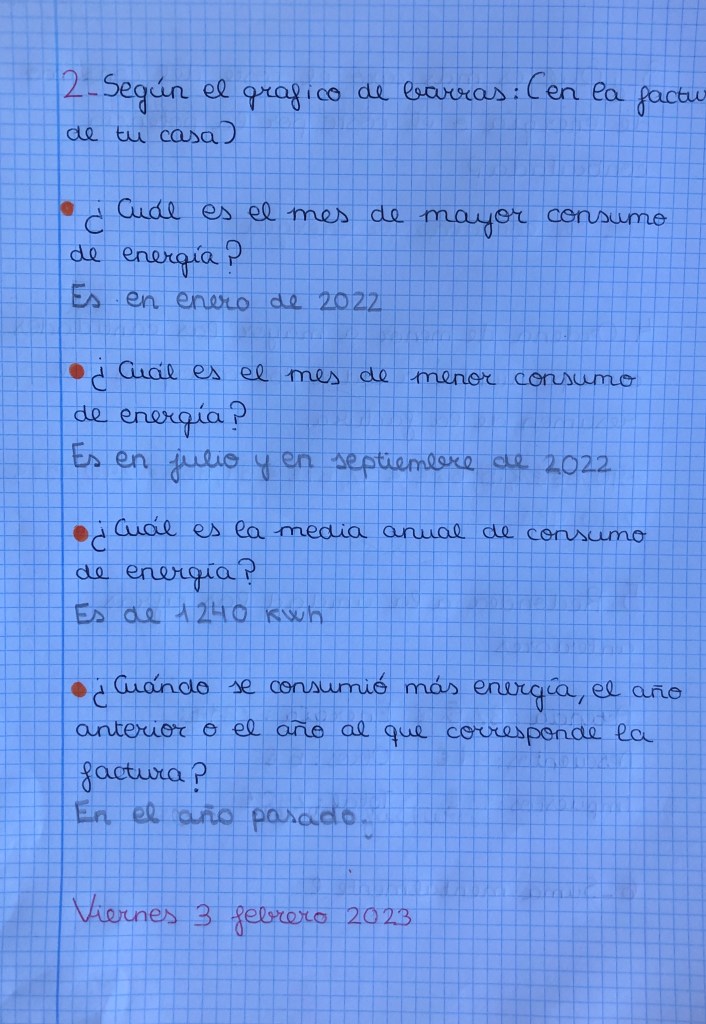 2- Según el grafico de barras: (en la factu
de tu casa)
¿Cuál es el mes de mayor consumo
de energía?
Es en enero de 2022
¿Cuál es el mes de menor consumo
de energía?
Es en julio y en septiembre de 2022
¿Cuál es la media anual de consumo
de energía?
Es de 1240 kwh
¿Cuándo se consumió más energía, el año
anterior o el año al que corresponde la
factura?
En el año pasado.
Viernes 3 febrero 2023